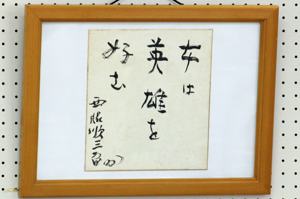 女は
英雄を
好む
西脇順三郎